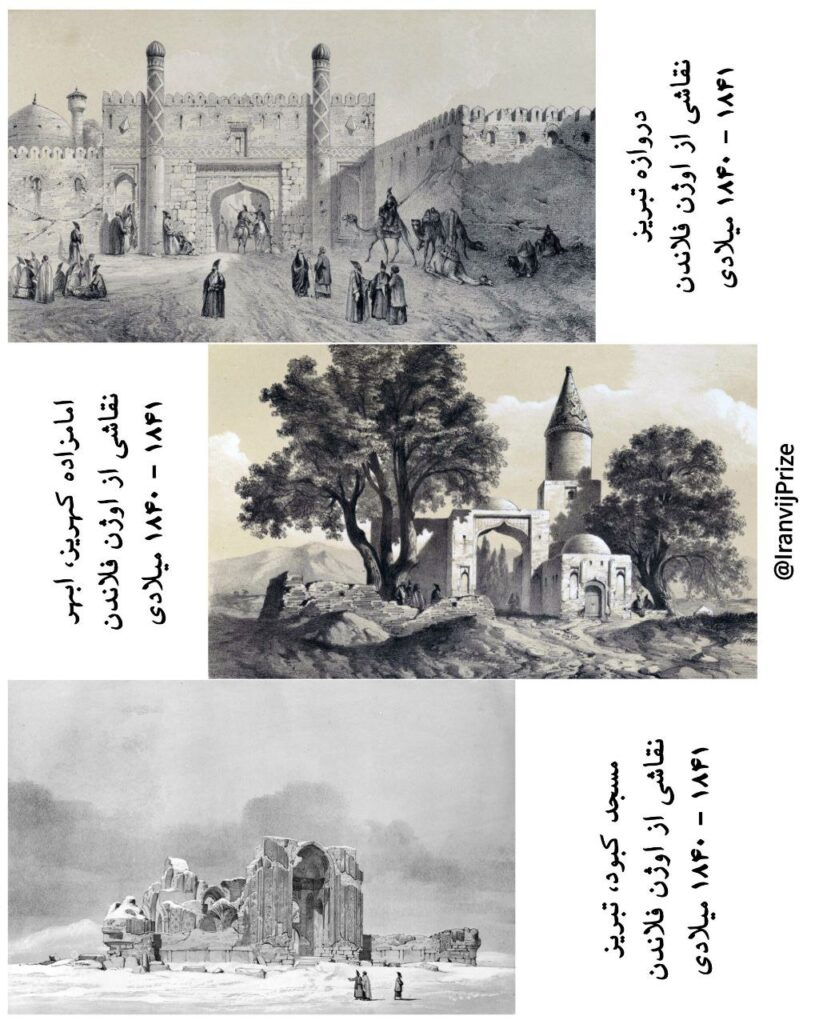 دروازه تبریز
نقاشی از اوژن فلاندن
۱۸۴۱ - ۱۸۴۰ میلادی
امامزاده کهریز، ابهر
نقاشی از اوژن فلاندن
۱۸۴۱ - ۱۸۴۰ میلادی
@IranvijPrize
مسجد کبود، تبریز
نقاشی از اوژن فلاندن
۱۸۴۱ - ۱۸۴۰ میلادی